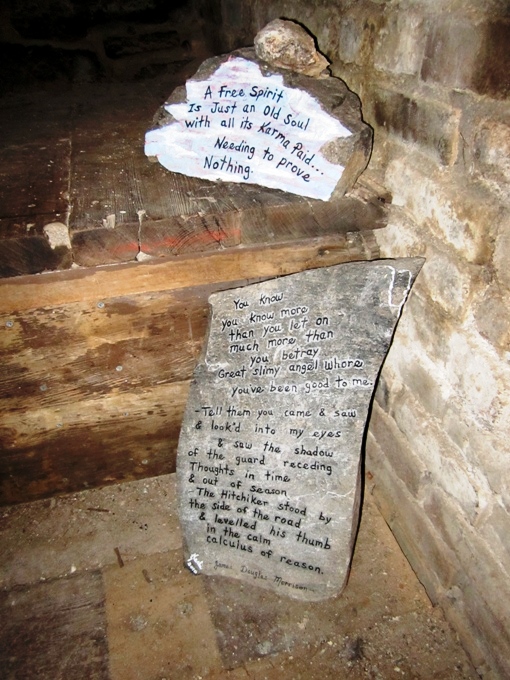 A free Spirit
Is Just an Old Soul
with all its Karma Paid...
Needing to prove
Nothing.
You know
you know more
than you let on -
much more than
you betray
Great slimy angel whore
you've been good to me.
-Tell them you came & saw
& look'd into my eyes
& saw the shadow
of the guard receding
Thoughts in time
& out of Season
The Hitchiker stood by
the side of the road
& levelled his thumb
in the calm
calculus of reason.
James Douglas Morrison